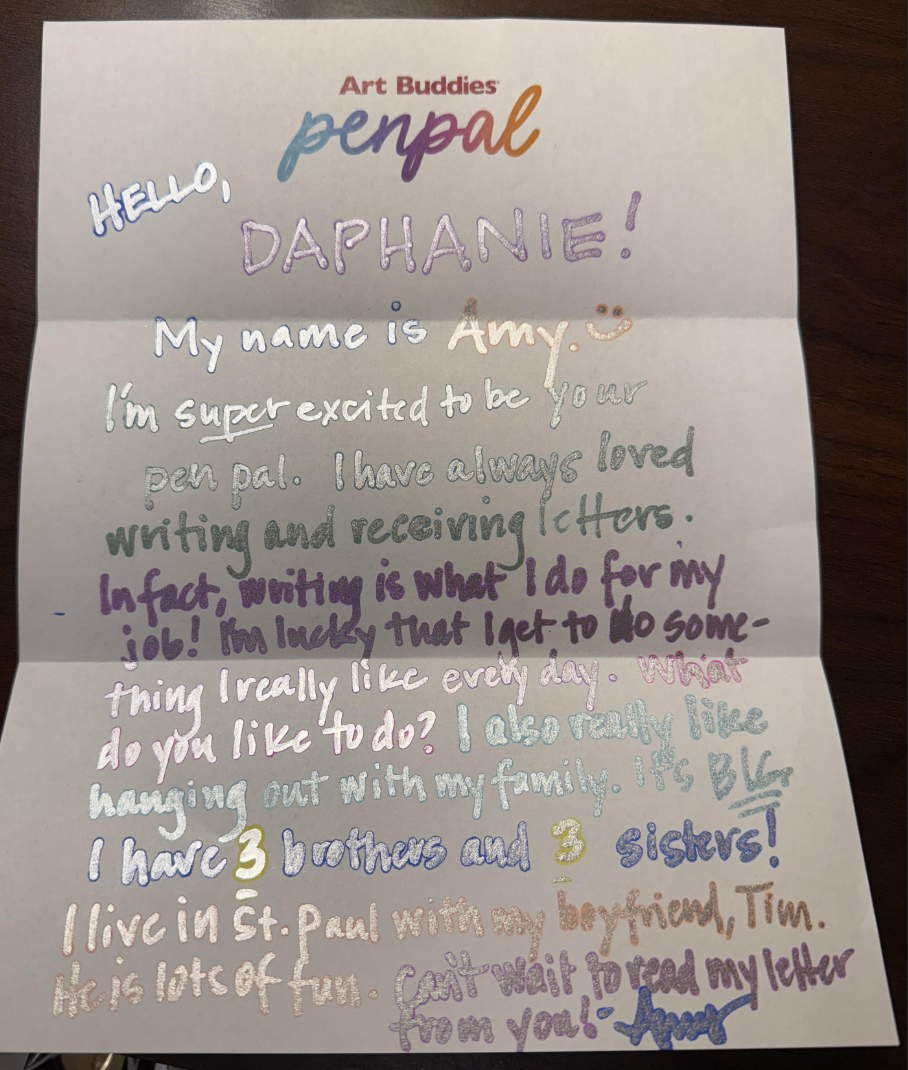 Art Buddies
penpal
HELLO,
DAPHANIE!
My name is Amy.
I'm super excited to be your
pen pal. I have always loved
writing and receiving letters.
In fact, writing is what I do for my
job! I'm lucky that I get to do some-
thing I really like every day. What
do you like to do? I also really like
hanging out with my family. It's BIG.
I have 3 brothers and 3 sisters!
I live in St. Paul with my boyfriend, Tim.
He is lots of fun. Can't wait to read my letter
from you! - Amy